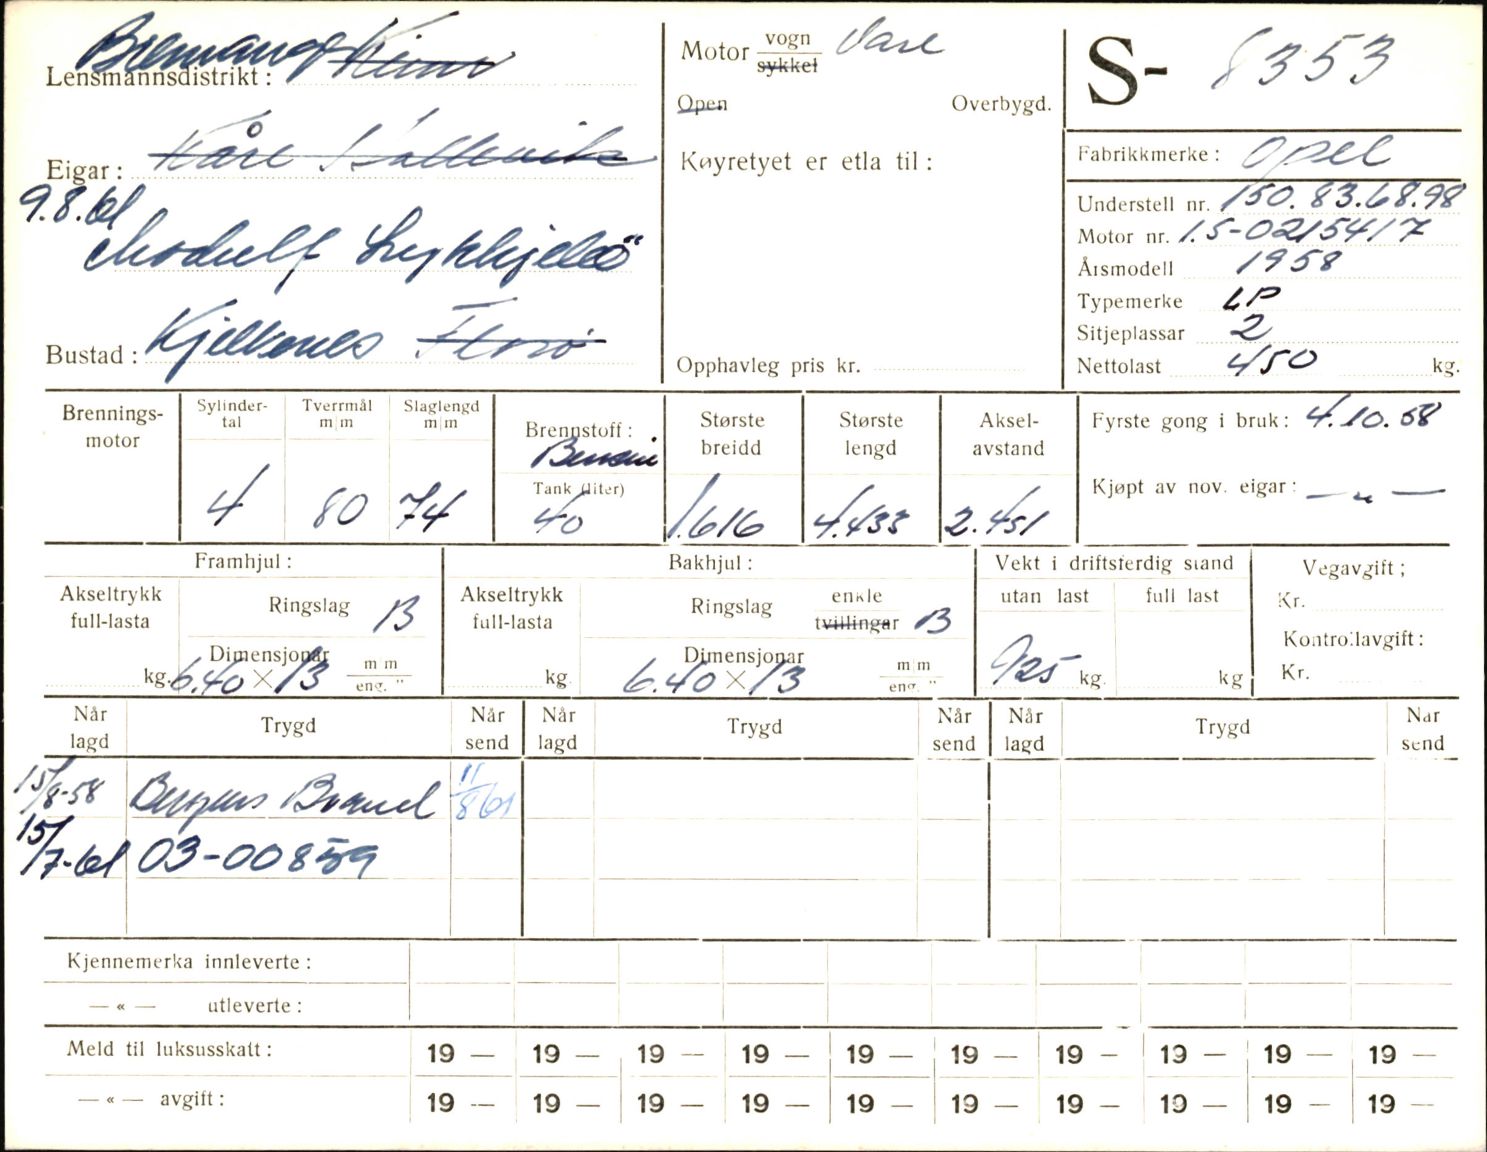 Lensmannsdistrikt: Bremanger Kinn
Eigar: Kåre Kallevik
9.8.61
Modulf Lykkjelø
Bustad: Kjelkenes Florø
Motor vogn Vare
sykkel
Open Overbygd.
Køyretyet er etla til:
Opphavleg pris kr.
S- 8353
Fabrikkmerke: Opel
Understell nr. 150.83.68.98
Motor nr. 1.5-0215417
Årsmodell 1958
Typemerke LP
Sitjeplassar 2
Nettolast 450 kg.
Brennings-
motor
Sylinder-
tal
4
Tverrmål
m|m
80
Slaglengd
m|m
74
Brennstoff:
Bensin
Tank (liter)
40
Største
breidd
1.616
Største
lengd
4.433
Aksel-
avstand
2.451
Fyrste gong i bruk: 4.10.58
Kjøpt av nov. eigar: — „ —
Framhjul:
Akseltrykk
full-lasta
kg.
Ringslag B
Dimensjonar
6.40 × 13 m m
eng. "
Bakhjul:
Akseltrykk
full-lasta
kg
Ringslag enkle
tvillingar B
Dimensjonar
6.40 × 13 m|m
eng. "
Vekt i driftsferdig stand
utan last full last
925 kg. kg
Vegavgift;
Kr.
Kontrollavgift:
Kr.
Når
lagd
Trygd
Når
send
Når
lagd
Trygd
Når
send
Når
lagd
Trygd
Når
send
15/8-58 Bergens Brand 11/8 61
15/7-61 03-00859
Kjennemerka innleverte:
— « — utleverte:
Meld til luksusskatt: 19 — 19 — 19 — 19 — 19 — 19 — 19 — 19 — 19 — 19 —
— « — avgift: 19 — 19 — 19 — 19 — 19 — 19 — 19 — 19 — 19 — 19 —